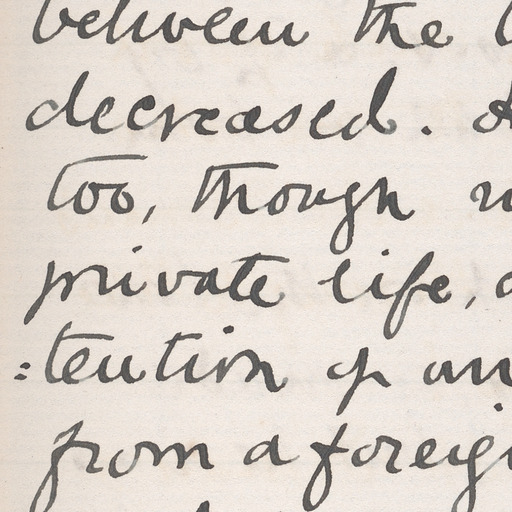 between the
decreased.
too, though
private life,
:tention of an
from a foreig